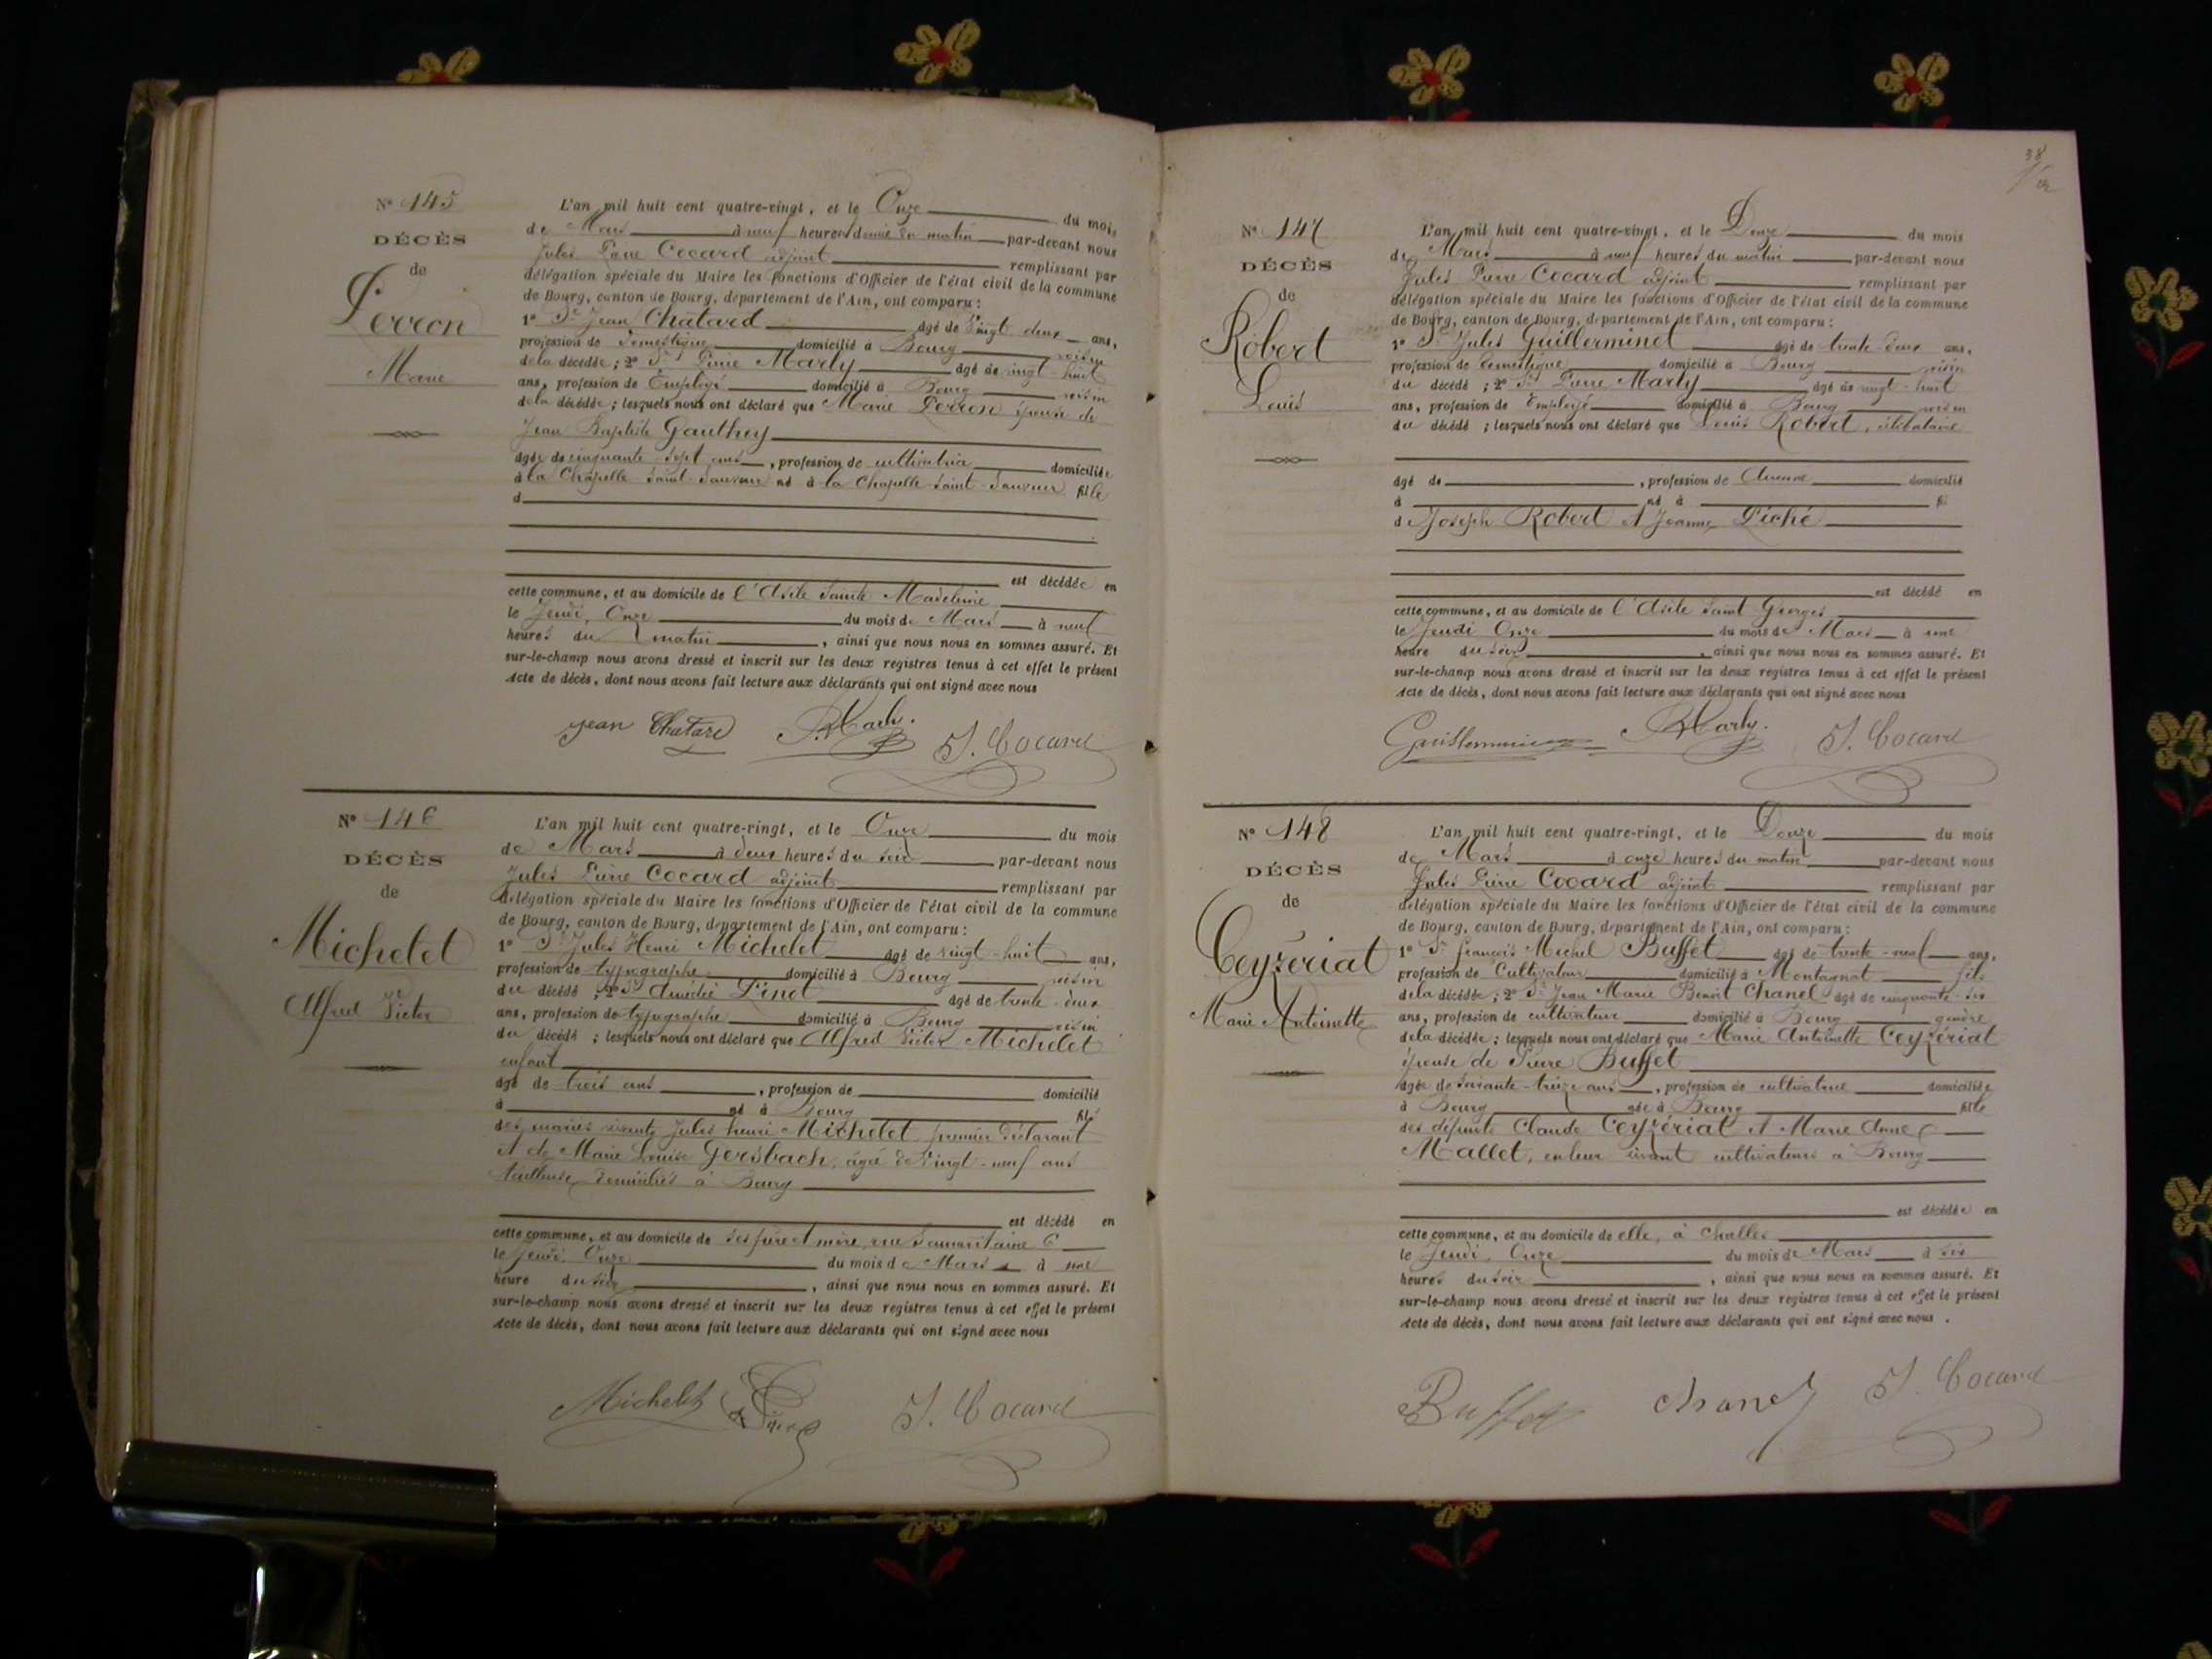 Nº 145
DÉCÈS
de
Perron
Marie
L'an mil huit cent quatre-vingt, et le Onze du mois
de Mars à neuf heures & demie du matin par-devant nous
Jules Pierre Cocard adjoint remplissant par
délégation spéciale du Maire les fonctions d'Officier de l'état civil de la commune
de Bourg, canton de Bourg, département de l'Ain, ont comparu :
1º Sr Jean Chatard âgé de vingt deux ans,
profession de domestique domicilié à Bourg voisin
de la décédée ; 2º Sr Pierre Marly âgé de vingt-huit
ans, profession de Employé domicilié à Bourg voisin
de la décédée ; lesquels nous ont déclaré que Marie Perron épouse de
Jean Baptiste Gauthey
âgée de cinquante-sept ans, profession de cultivatrice domiciliée
à la Chapelle Saint-Sauveur né à la Chapelle-Saint-Sauveur fille
d
est décédée en
cette commune, et au domicile de l'Asile Sainte Madeleine
le Jeudi, Onze du mois de Mars à neuf
heures du matin, ainsi que nous nous en sommes assuré. Et
sur-le-champ nous avons dressé et inscrit sur les deux registres tenus à cet effet le présent
Acte de décès, dont nous avons fait lecture aux déclarants qui ont signé avec nous
Jean Chatard P. Marly. J. Cocard
Nº 146
DÉCÈS
de
Michelet
Alfred Victor
L'an mil huit cent quatre-vingt, et le Onze du mois
de Mars à deux heures du soir par-devant nous
Jules Pierre Cocard adjoint remplissant par
délégation spéciale du Maire les fonctions d'Officier de l'état civil de la commune
de Bourg, canton de Bourg, département de l'Ain, ont comparu :
1º Sr Jules Henri Michelet âgé de vingt-huit ans,
profession de typographe domicilié à Bourg voisin
du décédé ; 2º Sr Amédée Pinet âgé de trente-deux
ans, profession de typographe domicilié à Bourg voisin
du décédé ; lesquels nous ont déclaré que Alfred Victor Michelet
enfant
âgé de trois ans, profession de domicilié
à né à Bourg fils
des mariés vivants Jules henri Michelet premier déclarant
et de Marie Louise Gersbach, âgée de vingt-neuf ans
tailleuse, domiciliés à Bourg
est décédé en
cette commune, et au domicile de ses père et mère, rue Samaritaine 6
le Jeudi, Onze du mois de Mars à une
heure du soir, ainsi que nous nous en sommes assuré. Et
sur-le-champ nous avons dressé et inscrit sur les deux registres tenus à cet effet le présent
Acte de décès, dont nous avons fait lecture aux déclarants qui ont signé avec nous
Michelet A Pinet J. Cocard
38
Nº 147
DÉCÈS
de
Robert
Louis
L'an mil huit cent quatre-vingt, et le Douze du mois
de Mars à neuf heures du matin par-devant nous
Jules Pierre Cocard adjoint remplissant par
délégation spéciale du Maire les fonctions d'Officier de l'état civil de la commune
de Bourg, canton de Bourg, département de l'Ain, ont comparu :
1º Sr Jules Guillerminet âgé de trente-deux ans,
profession de domestique domicilié à Bourg voisin
du décédé ; 2º Sr Pierre Marly âgé de vingt-huit
ans, profession de Employé domicilié à Bourg voisin
du décédé ; lesquels nous ont déclaré que Louis Robert, célibataire
âgé de, profession de Aucune domicilié
à né à fi
de Joseph Robert et Jeanne Piché
est décédé en
cette commune, et au domicile de l'Asile Saint-Georges
le Jeudi Onze du mois de Mars à une
heure du soir, ainsi que nous nous en sommes assuré. Et
sur-le-champ nous avons dressé et inscrit sur les deux registres tenus à cet effet le présent
Acte de décès, dont nous avons fait lecture aux déclarants qui ont signé avec nous
Guillerminet P. Marly. J. Cocard
Nº 148
DÉCÈS
de
Ceyzériat
Marie Antoinette
L'an mil huit cent quatre-vingt, et le Douze du mois
de Mars à onze heures du matin par-devant nous
Jules Pierre Cocard adjoint remplissant par
délégation spéciale du Maire les fonctions d'Officier de l'état civil de la commune
de Bourg, canton de Bourg, département de l'Ain, ont comparu :
1º Sr François Michel Buffet âgé de trente-neuf ans,
profession de Cultivateur domicilié à Montagnat fils
de la décédée ; 2º Sr Jean Marie Benoit Chanel âgé de cinquante-six
ans, profession de cultivateur domicilié à Bourg gendre
de la décédée ; lesquels nous ont déclaré que Marie Antoinette Ceyzériat
épouse de Pierre Buffet
âgée de soixante-treize ans, profession de cultivatrice domiciliée
à Bourg née à Bourg fille
des défunts Claude Ceyzériat et Marie Anne
Mallet, en leur vivant cultivateurs à Bourg
est décédée en
cette commune, et au domicile de elle, à Challes
le Jeudi, Onze du mois de Mars à six
heures du soir, ainsi que nous nous en sommes assuré. Et
sur-le-champ nous avons dressé et inscrit sur les deux registres tenus à cet effet le présent
Acte de décès, dont nous avons fait lecture aux déclarants qui ont signé avec nous.
Buffet Chanel J. Cocard